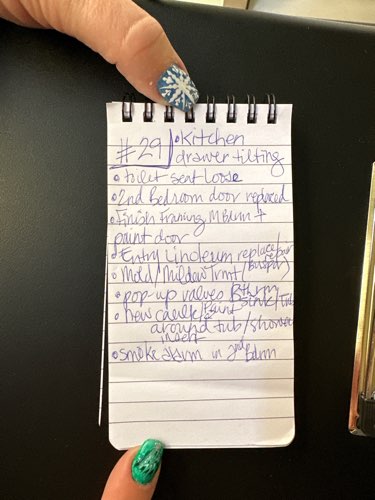 #29 • Kitchen
drawer tilting
• toilet seat loose
• 2nd bedroom door replaced
• Finish Framing MBdrm +
paint door
• Entry Linoleum replace/repair
• Mold/Mildew Trmt/
• pop-up valves Bthrm Sink/Tub
• new caulk/Paint
around tub/shower
insert
• smoke alarm in 2nd Bdrm